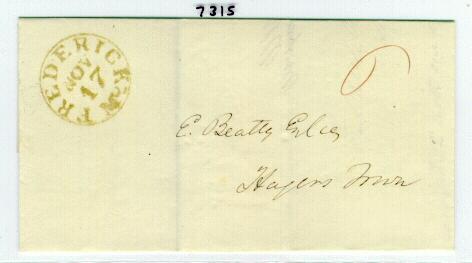 7315
FREDERICK Md
NOV
17
6
E. Beatty Esqr
Hagers Town